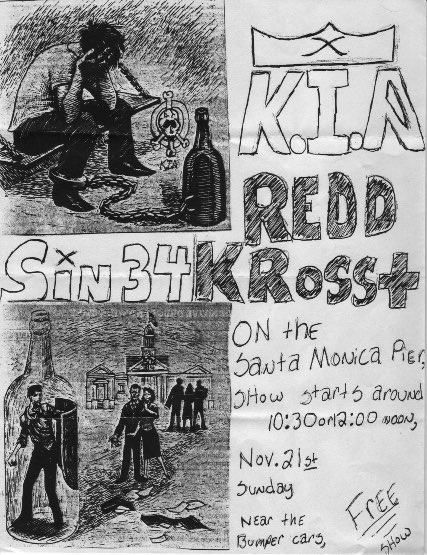 K.I.A
KIA
REDD
SiN 34
KRoss+
ON the
Santa Monica Pier,
SHow starts around
10:30 or 12:00 NOON,
Nov. 21st
Sunday
NEAR the
Bumper cars,
FREE
SHOW